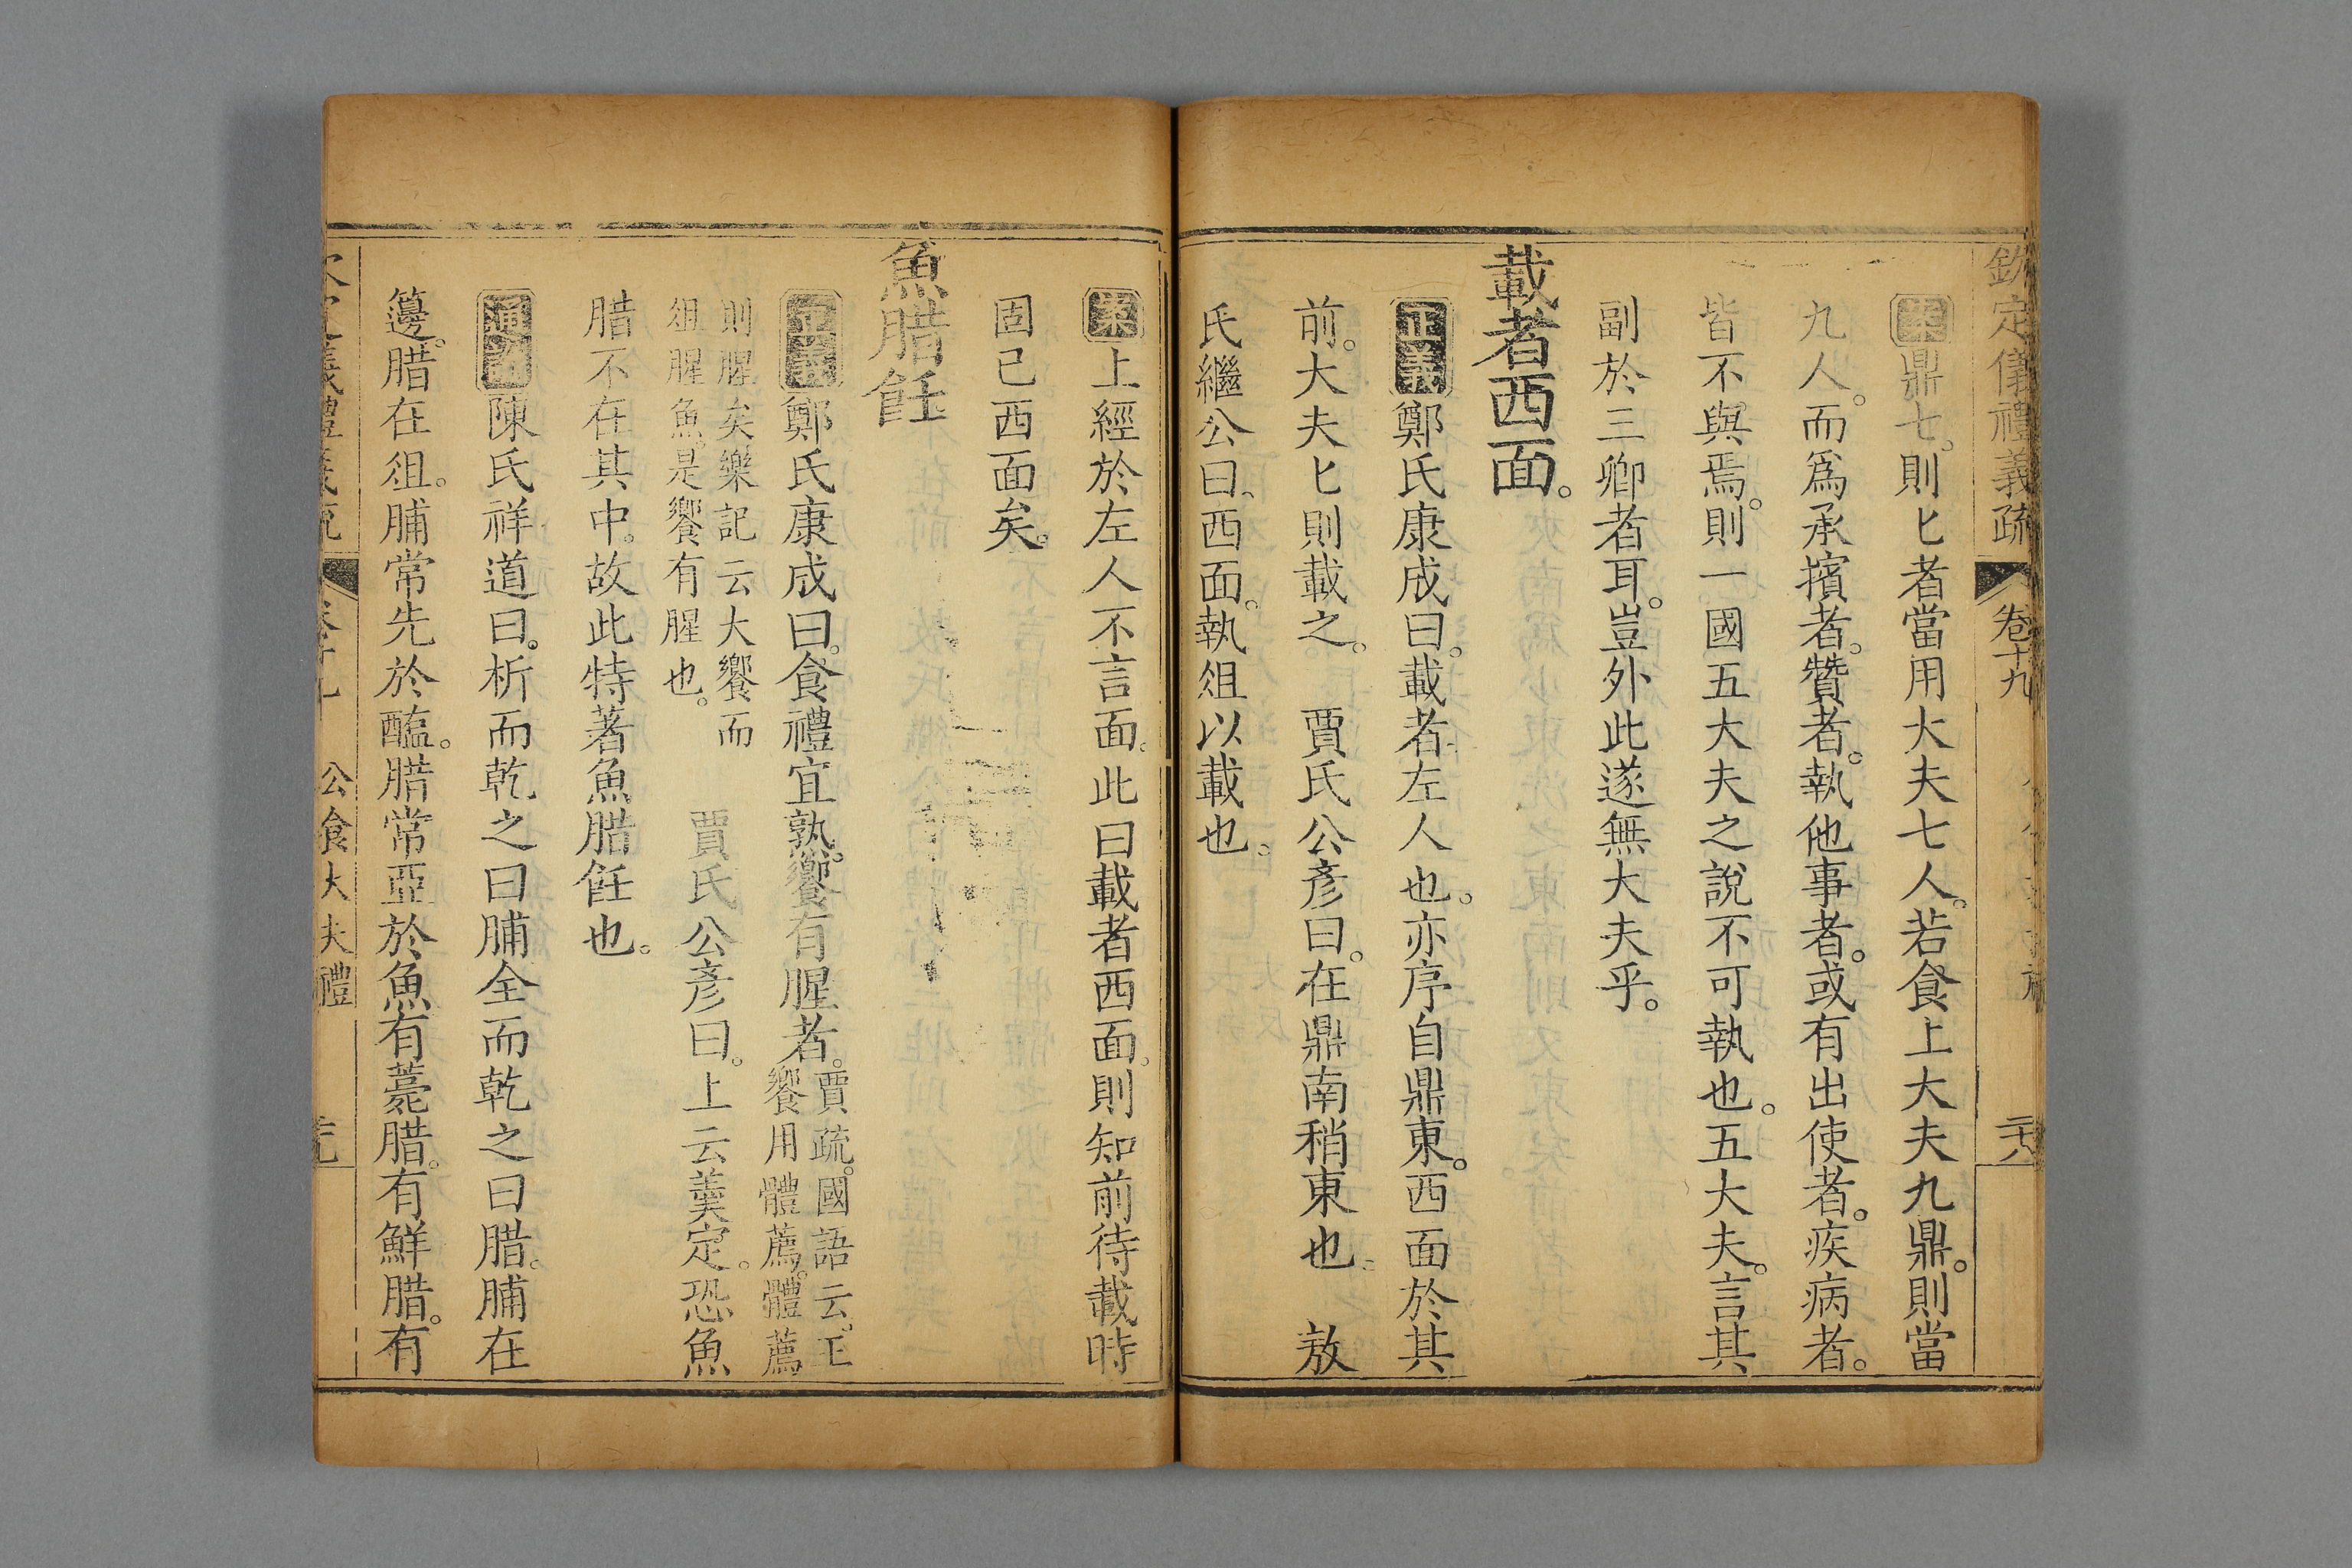 欽定儀禮義疏 卷十九 六
案鼎七。則匕者當用大夫七人。若食上大夫九鼎。則當
九人。而爲承擯者。贊者。執他事者。或有出使者。疾病者。
皆不與焉。則一國五大夫之說不可執也。五大夫。言其
副於三卿者耳。豈外此遂無大夫乎。
載者西面。
正義鄭氏康成曰。載者左人也。亦序自鼎東。西面於其
前。大夫匕則載之。 賈氏公彥曰。在鼎南稍東也。 敖
氏繼公曰。西面。執俎以載也。
案上經於左人不言面。此曰載者西面。則知前待載時
固已西面矣。
魚腊飪
正義鄭氏康成曰。食禮宜孰。饗有腥者。賈疏。國語云。王
饗用體薦。體薦
則腥矣樂記云大饗而
俎腥魚。是饗有腥也。 賈氏公彥曰。上云羹定。恐魚
腊不在其中。故此特著魚腊飪也。
通論陳氏祥道曰。析而乾之曰脯全而乾之曰腊。脯在
籩。腊在俎。脯常先於醢。腊常亞於魚有薧腊。有鮮腊。有
公食大夫禮